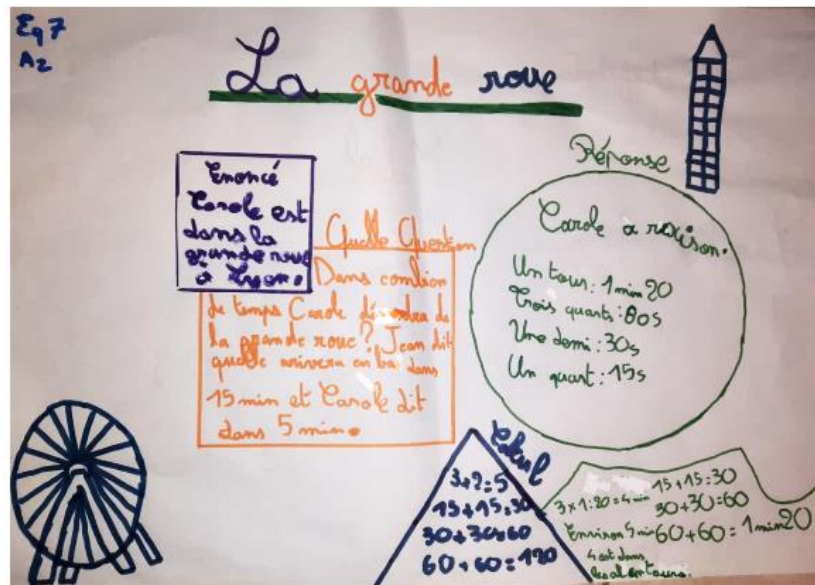 Eq 7
A2
La grande roue
Enoncé
Carole est
dans la
grande roue
à Lyon.
Quelle Question
Dans combien
de temps Carole
de
la grande roue ? Jean dit
quelle arivera en bas dans
15 min et Carole dit
dans 5 min.
Réponse
Carole a raison.
Un tour : 1 min 20
Trois quarts : 60s
Une demi : 30s
Un quart : 15s
Calcul
3+2=5
15+15=30
30+30=60
60+60=120
15+15=30
3 x 1:20=4 min
30+30=60
Environ 5 min
60+60=1 min 20
4 est dans
les alentours.